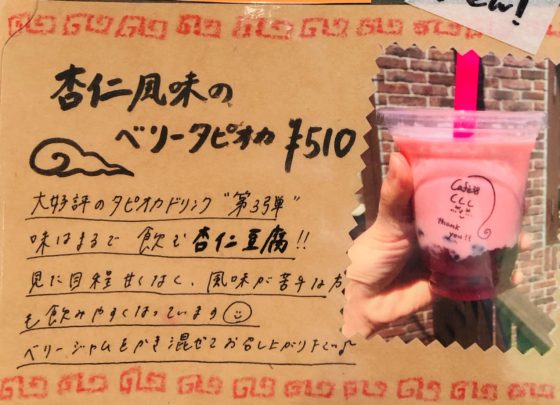 てん!
杏仁風味の
ベリータピオカ ¥510
大好評のタピオカドリンク "第3弾"
味はまるで 飲む杏仁豆腐!!
見た目程甘くなく、風味が苦手な方
も飲みやすくなっています
ベリージャムをかき混ぜてお召し上がり下さい♪
Cafe
CLL
Thank
you!!